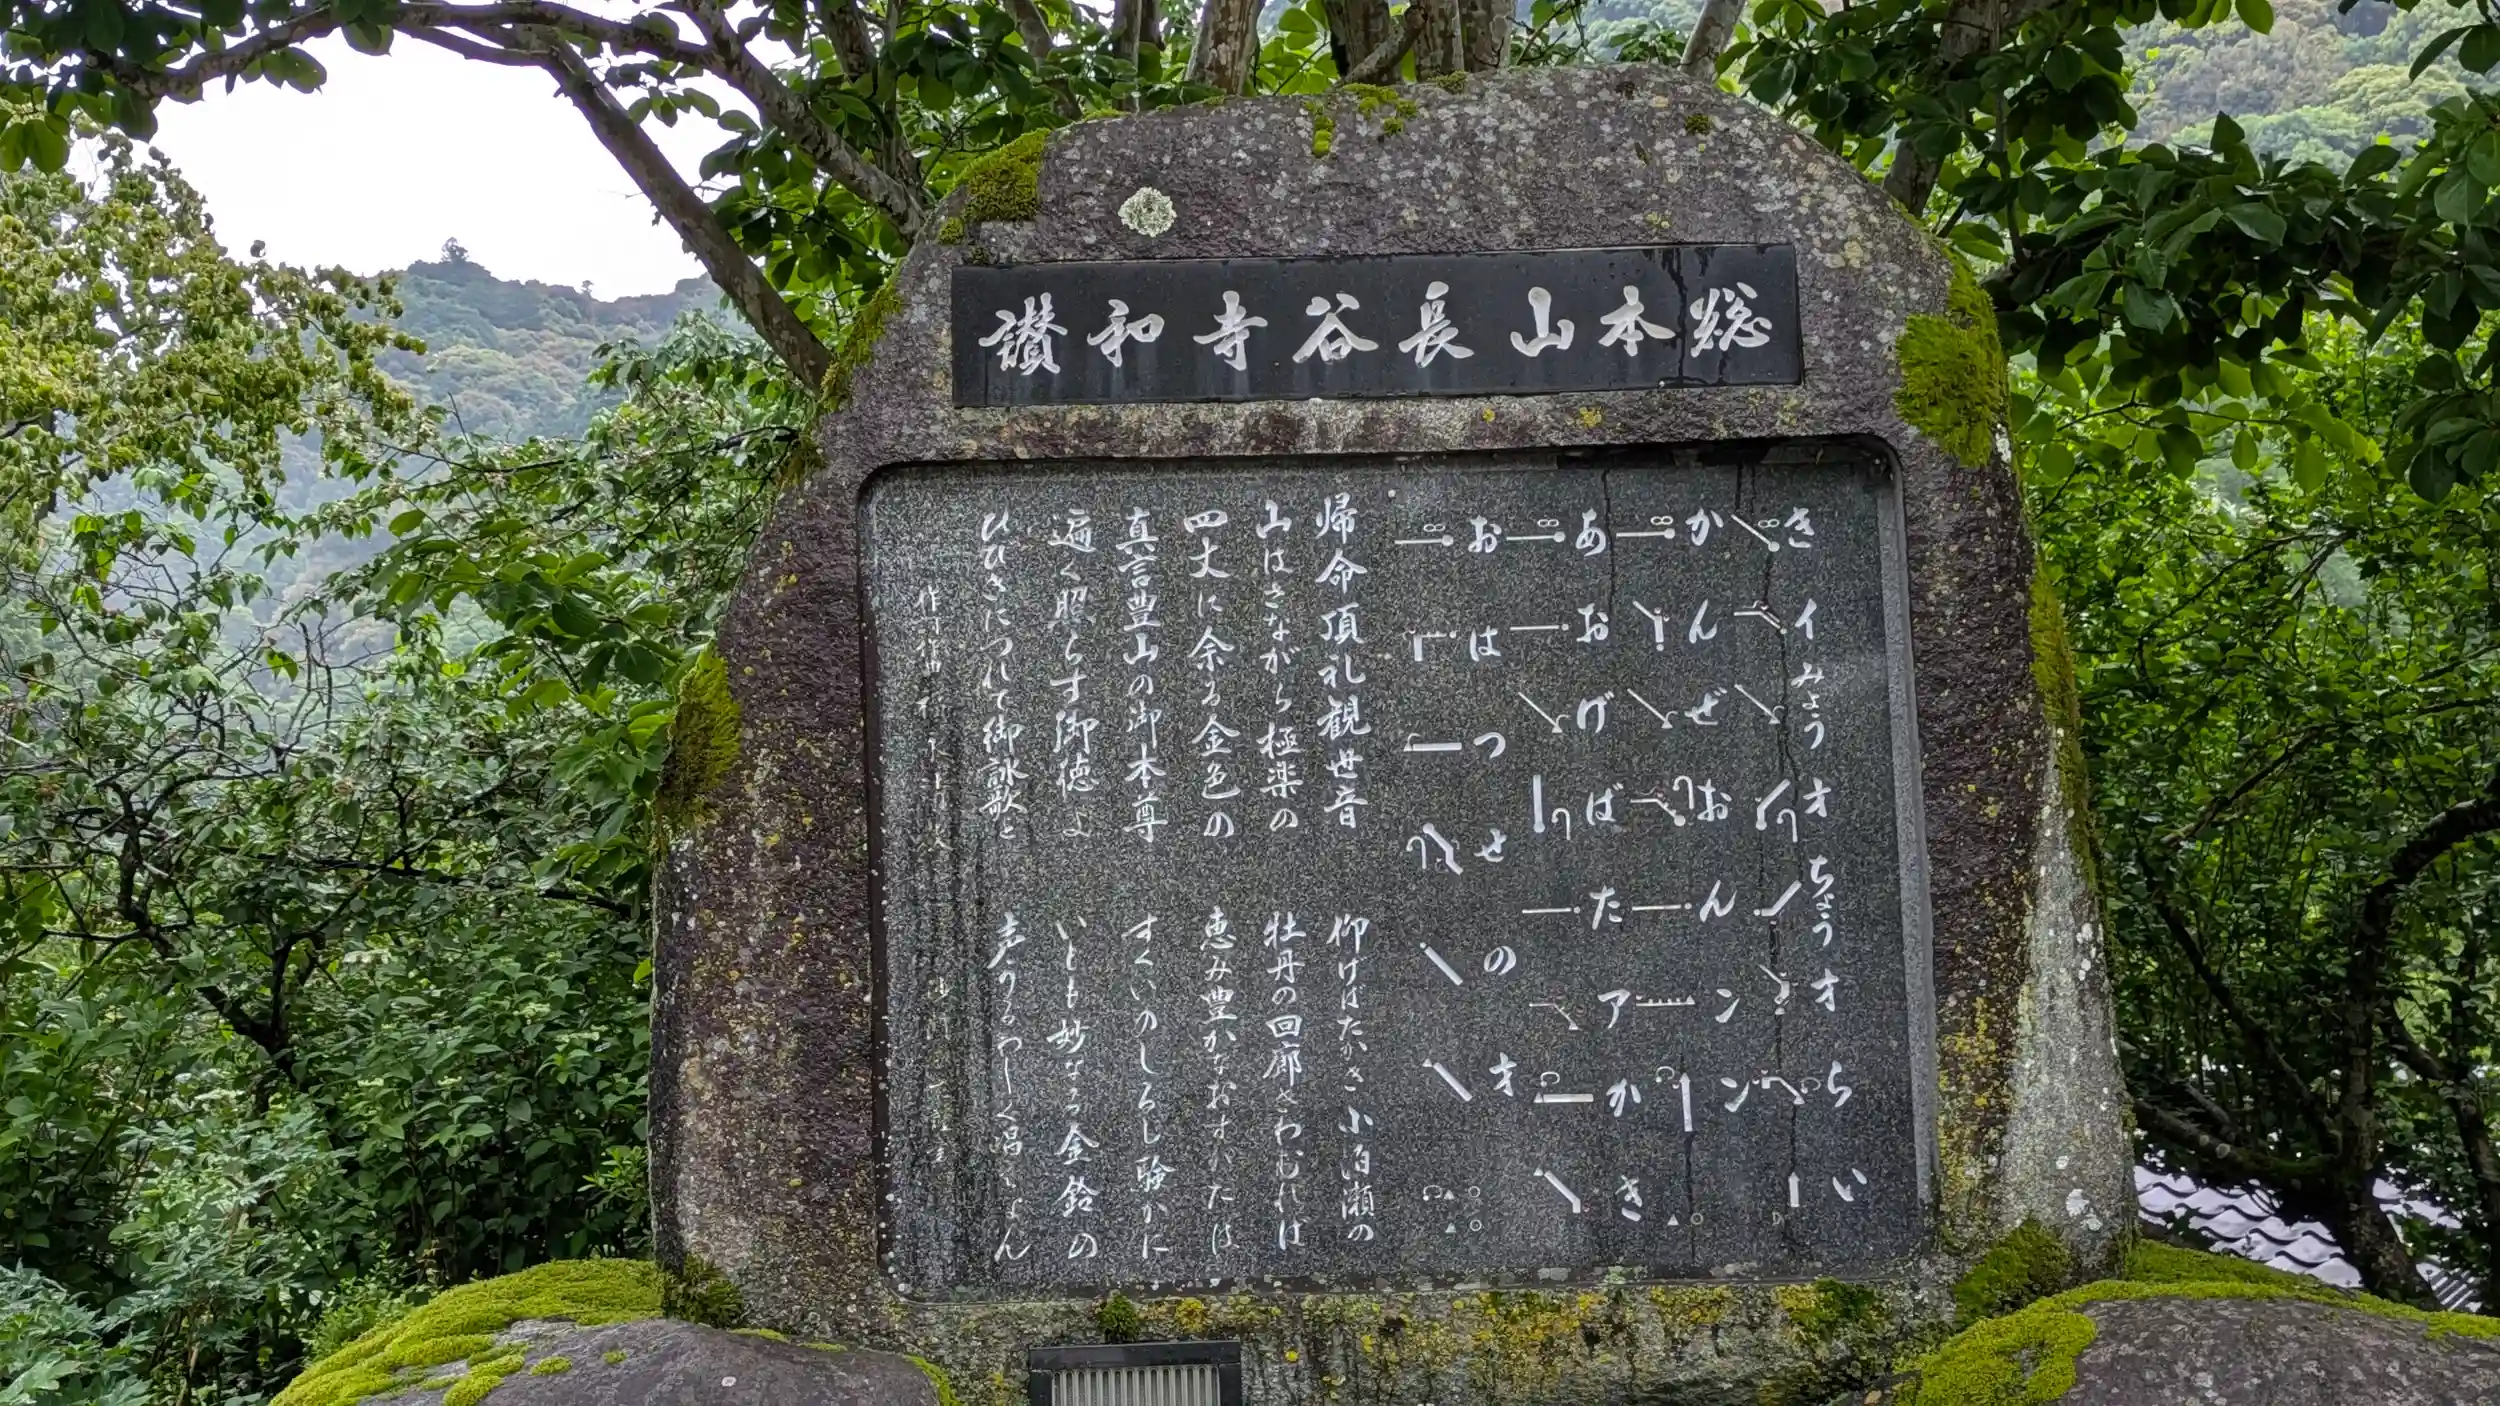 総本山長谷寺和讃
きイみょうオちょうオらい
かんぜおんンン
あおげばたアかき
おはつせのオ
帰命頂礼観世音 仰げばたかき小泊瀬の
山はさながら極楽の 牡丹の回廊きわむれば
四丈に余る金色の 恵み豊かなおすがたは
真言豊山の御本尊 すくいのしるし験かに
遍く照らす御徳よ いとも妙なる金鈴の
ひびきにつれて御詠歌と 声うるわしく唱えなん